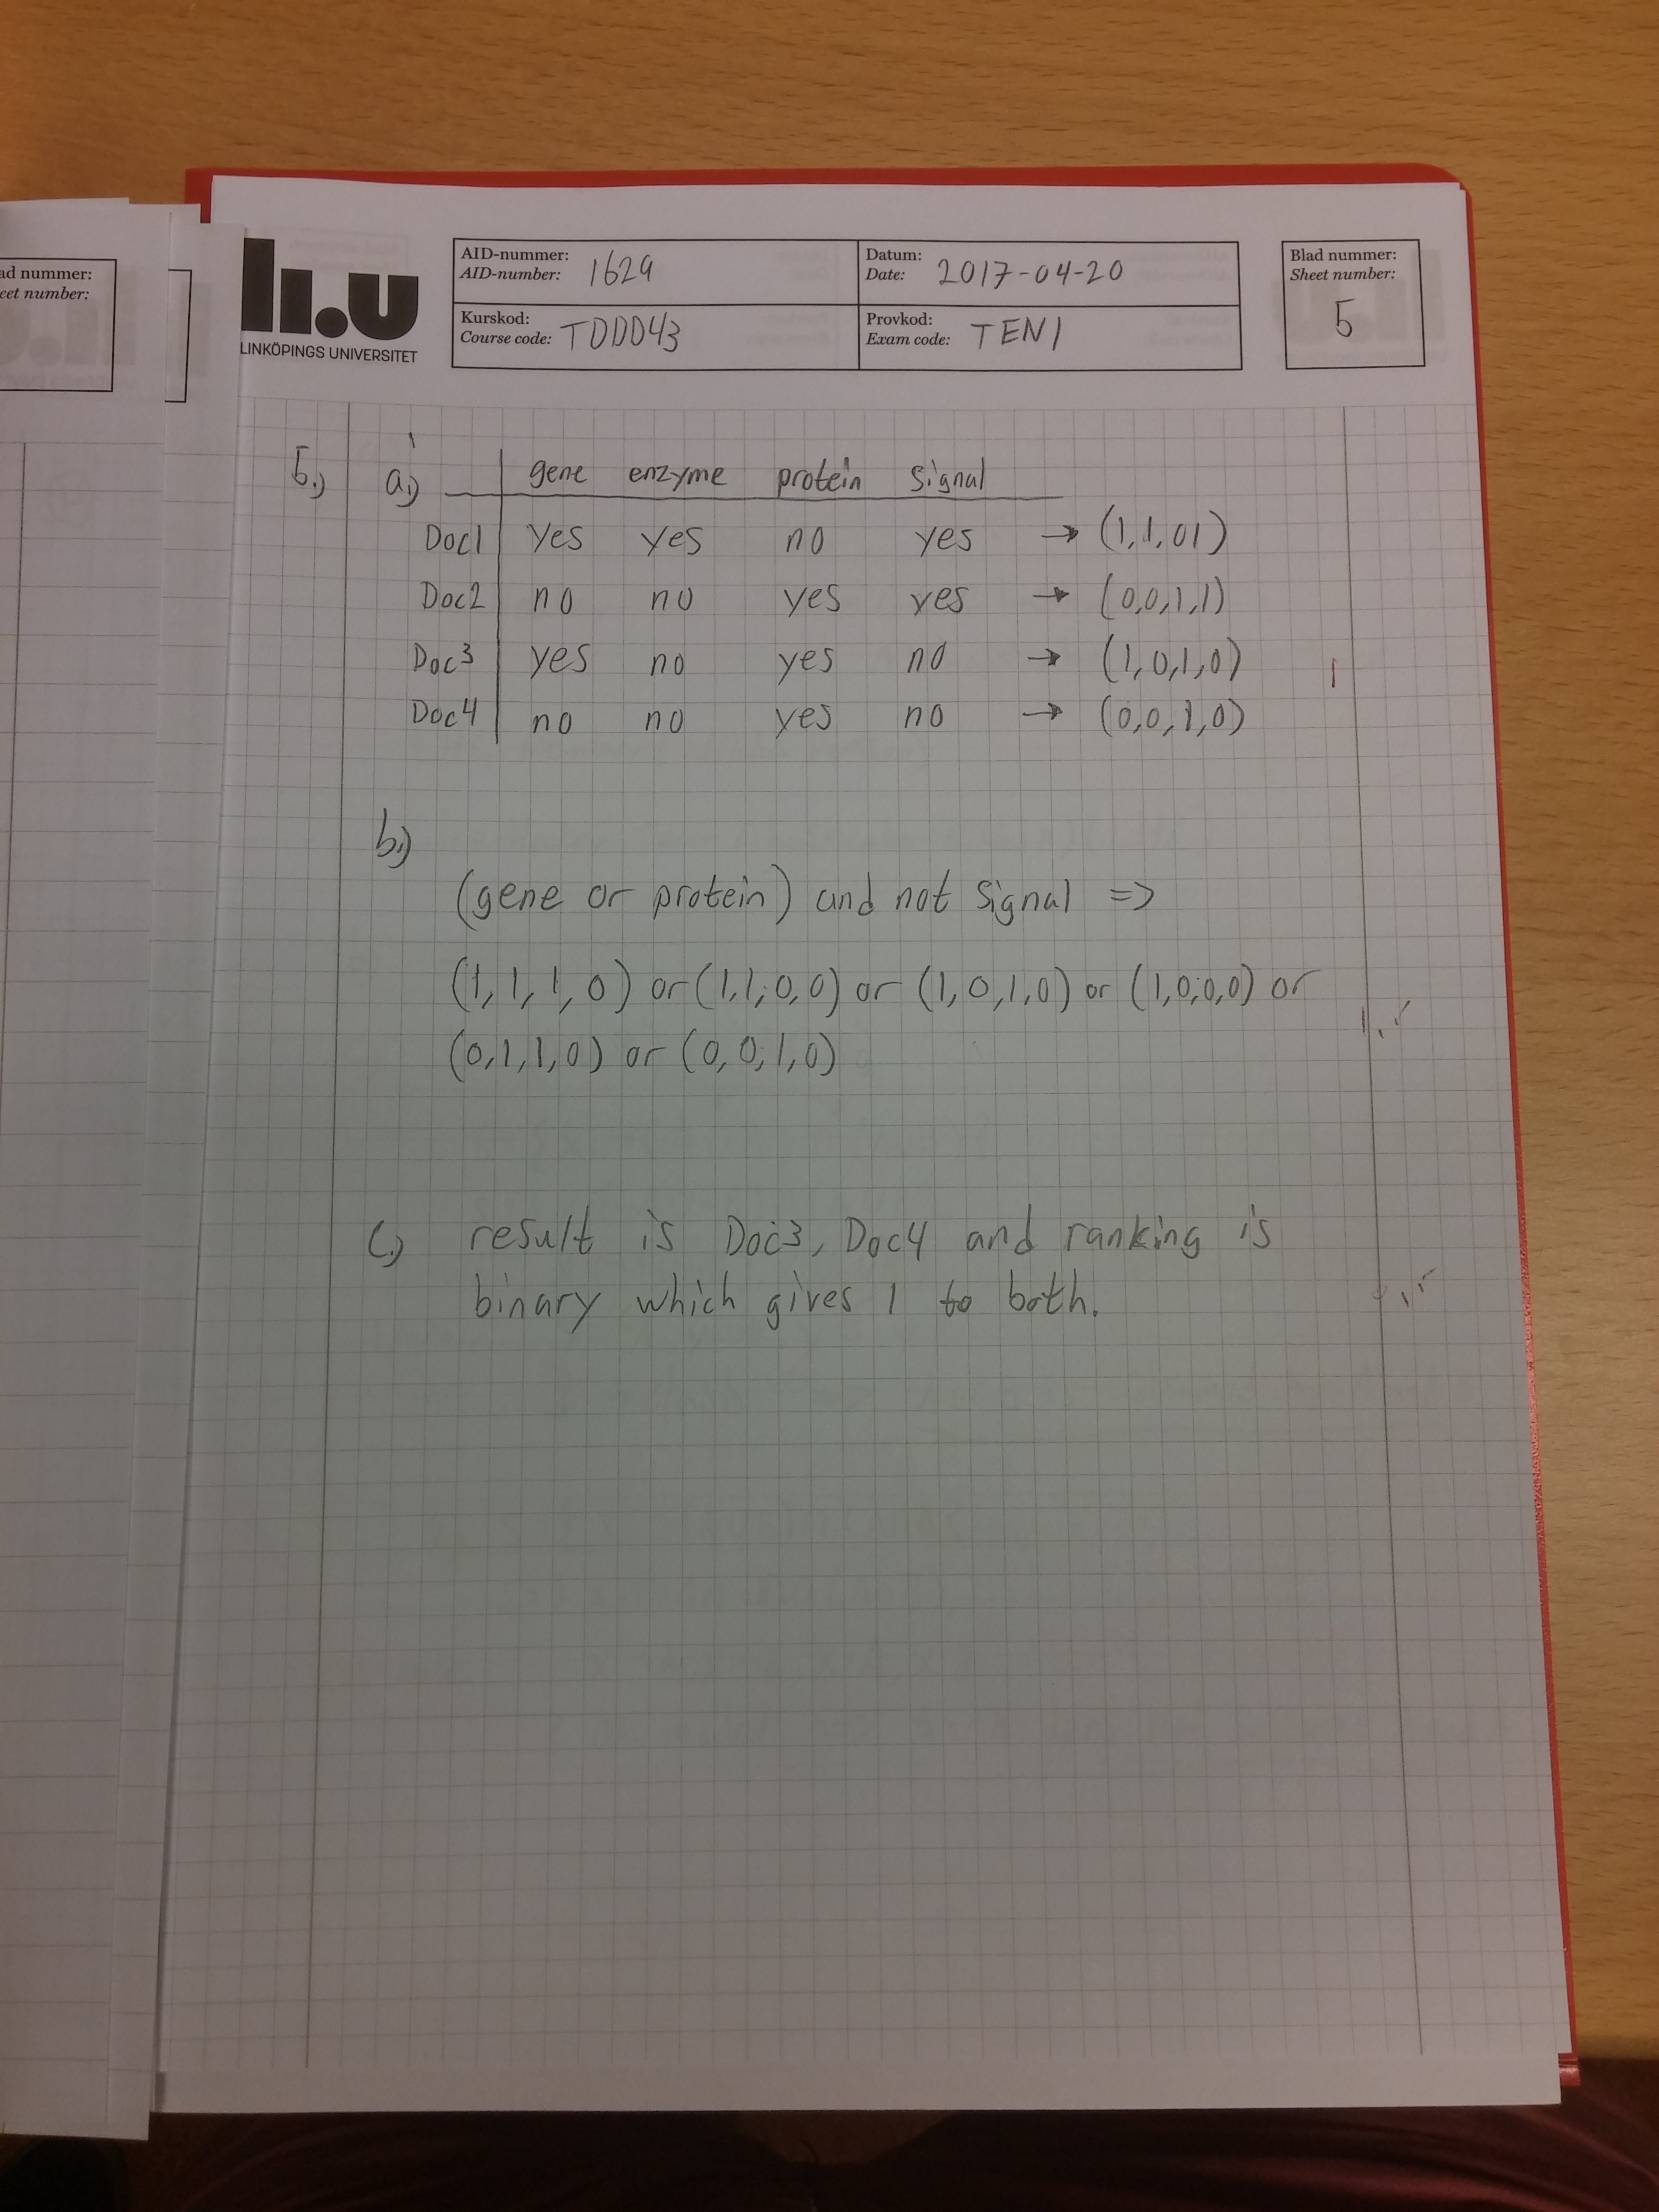 ad nummer:
eet number:
li.u
LINKÖPINGS UNIVERSITET
AID-nummer:
AID-number: 1629
Datum:
Date: 2017-04-20
Kurskod:
Course code: TDDD43
Provkod:
Exam code: TEN1
Blad nummer:
Sheet number:
5
5.) a.) gene enzyme protein signal
Doc1 yes yes no yes → (1,1,01)
Doc2 no no yes yes → (0,0,1,1)
Doc3 yes no yes no → (1,0,1,0) 1
Doc4 no no yes no → (0,0,1,0)
b.)
(gene or protein) and not signal =>
(1,1,1,0) or (1,1,0,0) or (1,0,1,0) or (1,0,0,0) or
(0,1,1,0) or (0,0,1,0)
c.) result is Doc3, Doc4 and ranking is
binary which gives 1 to both.